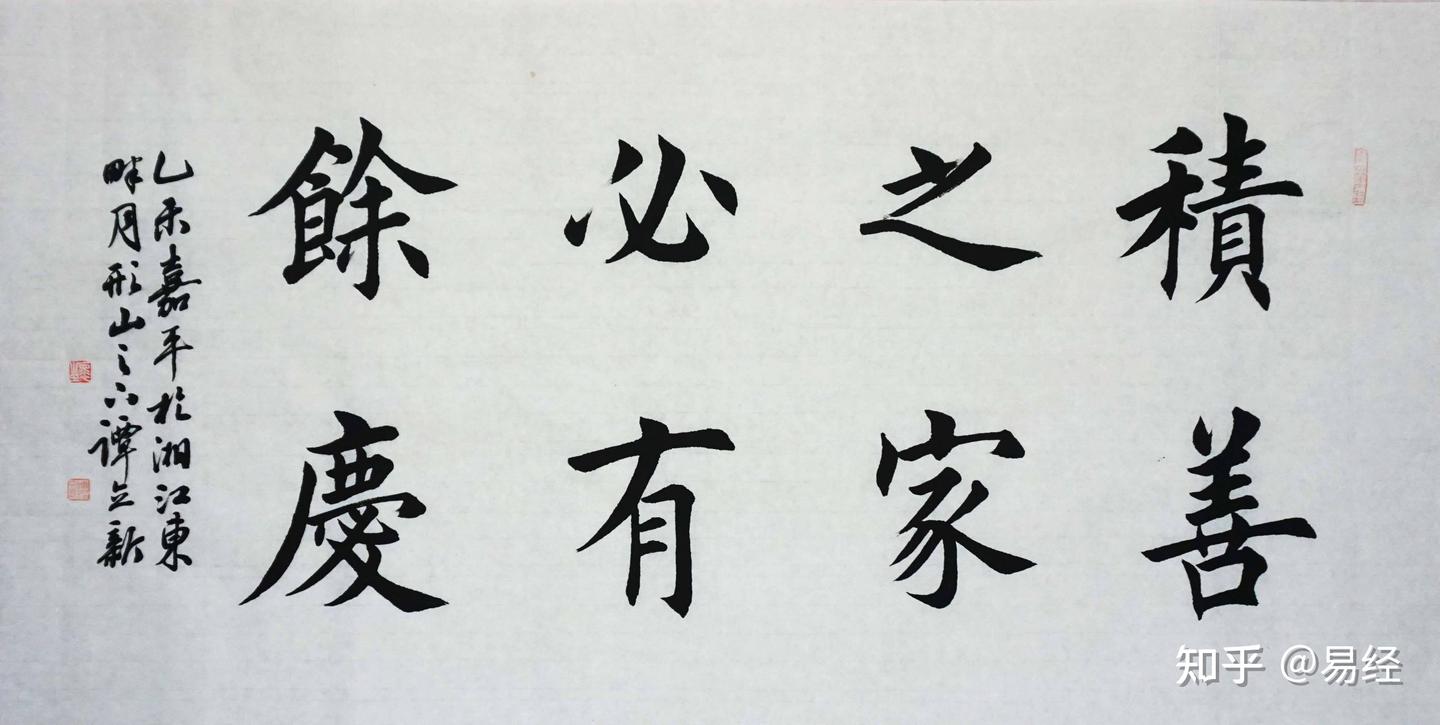 積善
之家
必有
餘慶
乙未嘉平於湘江東
畔月形山之下譚立新
知乎 @易经